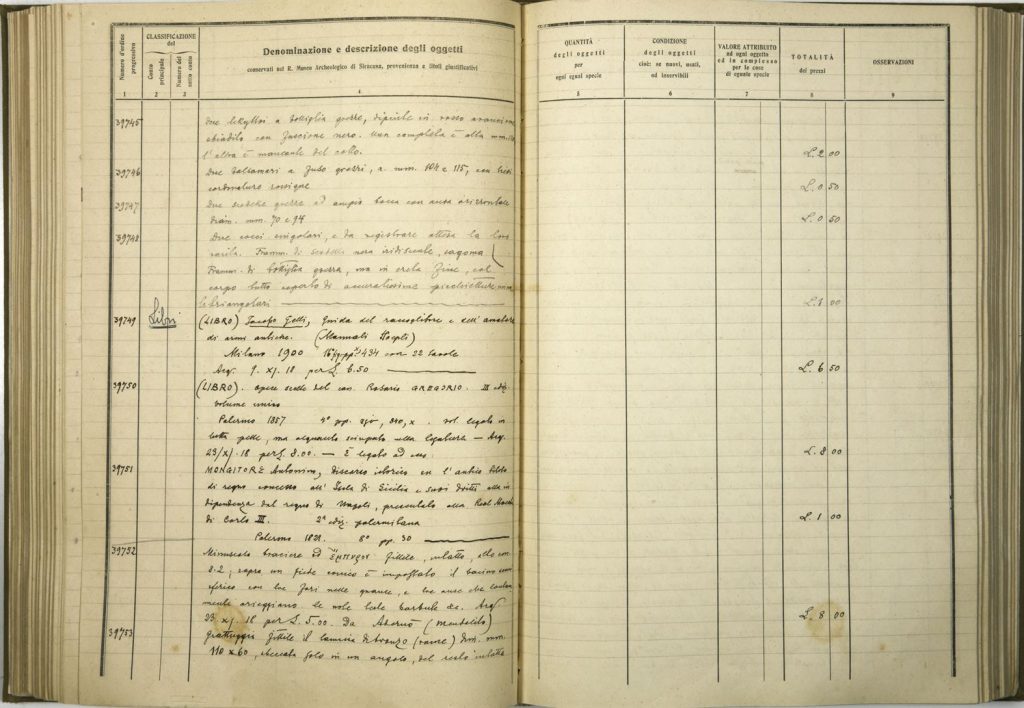 Numero d'ordine progressivo
CLASSIFICAZIONE del
Conto principale
Numero del sotto conto
Denominazione e descrizione degli oggetti
conservati nel R. Museo Archeologico di Siracusa, provenienza e titoli giustificativi
1 2 3 4
39745 Due lekythoi a bottiglia grezze, dipinte in rosso arancione
con fascione nero. Una completa è alta mm.
l'altra è mancante del collo.
39746 Due balsamari a fuso grezzi, a mm. 104 e 115, con
rossigne
39747 Due scodelle grezze ad ampia bocca con ansa orizzontale
diam. mm. 70 e 94
39748 Due cocci singolari, e da registrare attesa la loro
rarità. Framm. di scodella nera iridiscente, sagoma
Framm. di bottiglia grezza, ma in creta fine, col
corpo tutto coperto di accuratissime picchiettature
triangolari
39749 Libri (LIBRO) Jacopo Gelli, Guida del raccoglitore e dell'amatore
di armi antiche. (Manuali Hoepli)
Milano 1900 434 con 22 tavole
Acq. 9. XI. 18 per L. 6.50
39750 (LIBRO). Opere scelte del can. Rosario GREGORIO. III ediz.
volume unico
Palermo 1857 4° pp. 840, X. vol. legato in
tutta pelle, ma alquanto sciupato nella legatura — Acq.
23/XI. 18 per L. 8.00. — È legato ad uso.
39751 MONGITORE Antonino, Discorso istorico su l'antico titolo
di regno concesso all'Isola di Sicilia e suoi diritti alla in
dipendenza dal regno di Napoli, presentato alla Real
di Carlo III. 2ª ediz. palermitana
Palermo 1821. 8° pp. 30
39752 Minuscolo braciere ad fittile, intatto, alto cm.
8.2; sopra un piede conico è impostato il bacino emi
sferico con tre fori nelle guance, e tre anse che
mente arieggiano le note teste barbute &c. Acq.
23. XI. 18 per L. 5.00. Da Adernò (Mendolito)
39753 Grattuggia fittile lamina di bronzo (rame) Dim. mm.
110 x 60, solo in un angolo, del resto intatta
QUANTITÀ degli oggetti per ogni egual specie
CONDIZIONE degli oggetti cioè: se nuovi, usati, od inservibili
VALORE ATTRIBUITO ad ogni oggetto ed in complesso per le cose di eguale specie
TOTALITÀ dei prezzi
OSSERVAZIONI
5 6 7 8 9
L. 2 00
L. 0 50
L. 0 50
L. 1 00
L. 6 50
L. 8 00
L. 1 00
L. 8 00